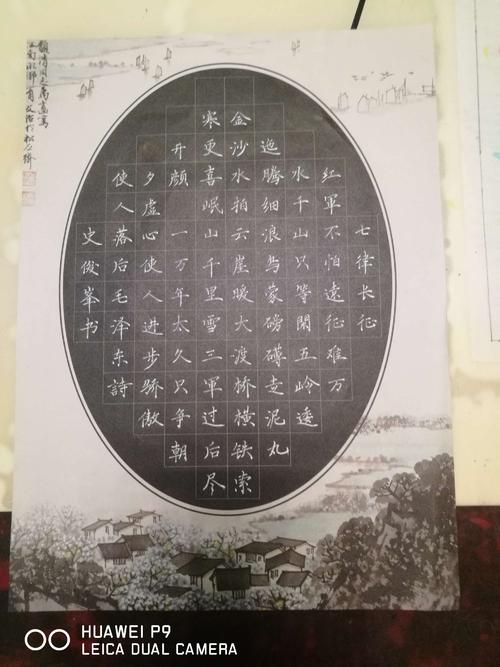 七律长征
红軍不怕遠征难万
水千山只等閒五岭逶
迤腾细浪烏蒙磅礴走泥丸
金沙水拍云崖暖大渡桥横铁索
寒更喜岷山千里雪三軍过后尽
开颜 一万年太久只争朝
夕虚心使人进步骄傲
使人落后毛泽东詩
史俊峯书
江南水鄉
HUAWEI P9
LEICA DUAL CAMERA